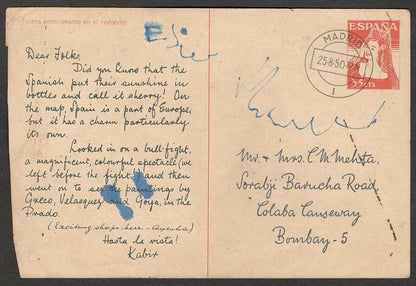 Escena emocionante en el redondel
Dear Folks,
Did you know that the
Spanish put their sunshine in
bottles and call it sherry! On
the map, Spain is a part of Europe,
but it has a charm particularly
its own.
Looked in on a bull-fight,
a magnificent, colourful spectacle (we
left before the fight) and then
went on to see the paintings by
Greco, Velasquez and Goya, in the
Prado.
(Exciting shops here - Ayesha)
Hasta la vista!
Kabir
ESPAÑA
MADRID
25·8·50
1
35 CTS
Mr. & Mrs. C. M. Mehta.
Sorabji Barucha Road,
Colaba Causeway
Bombay-5